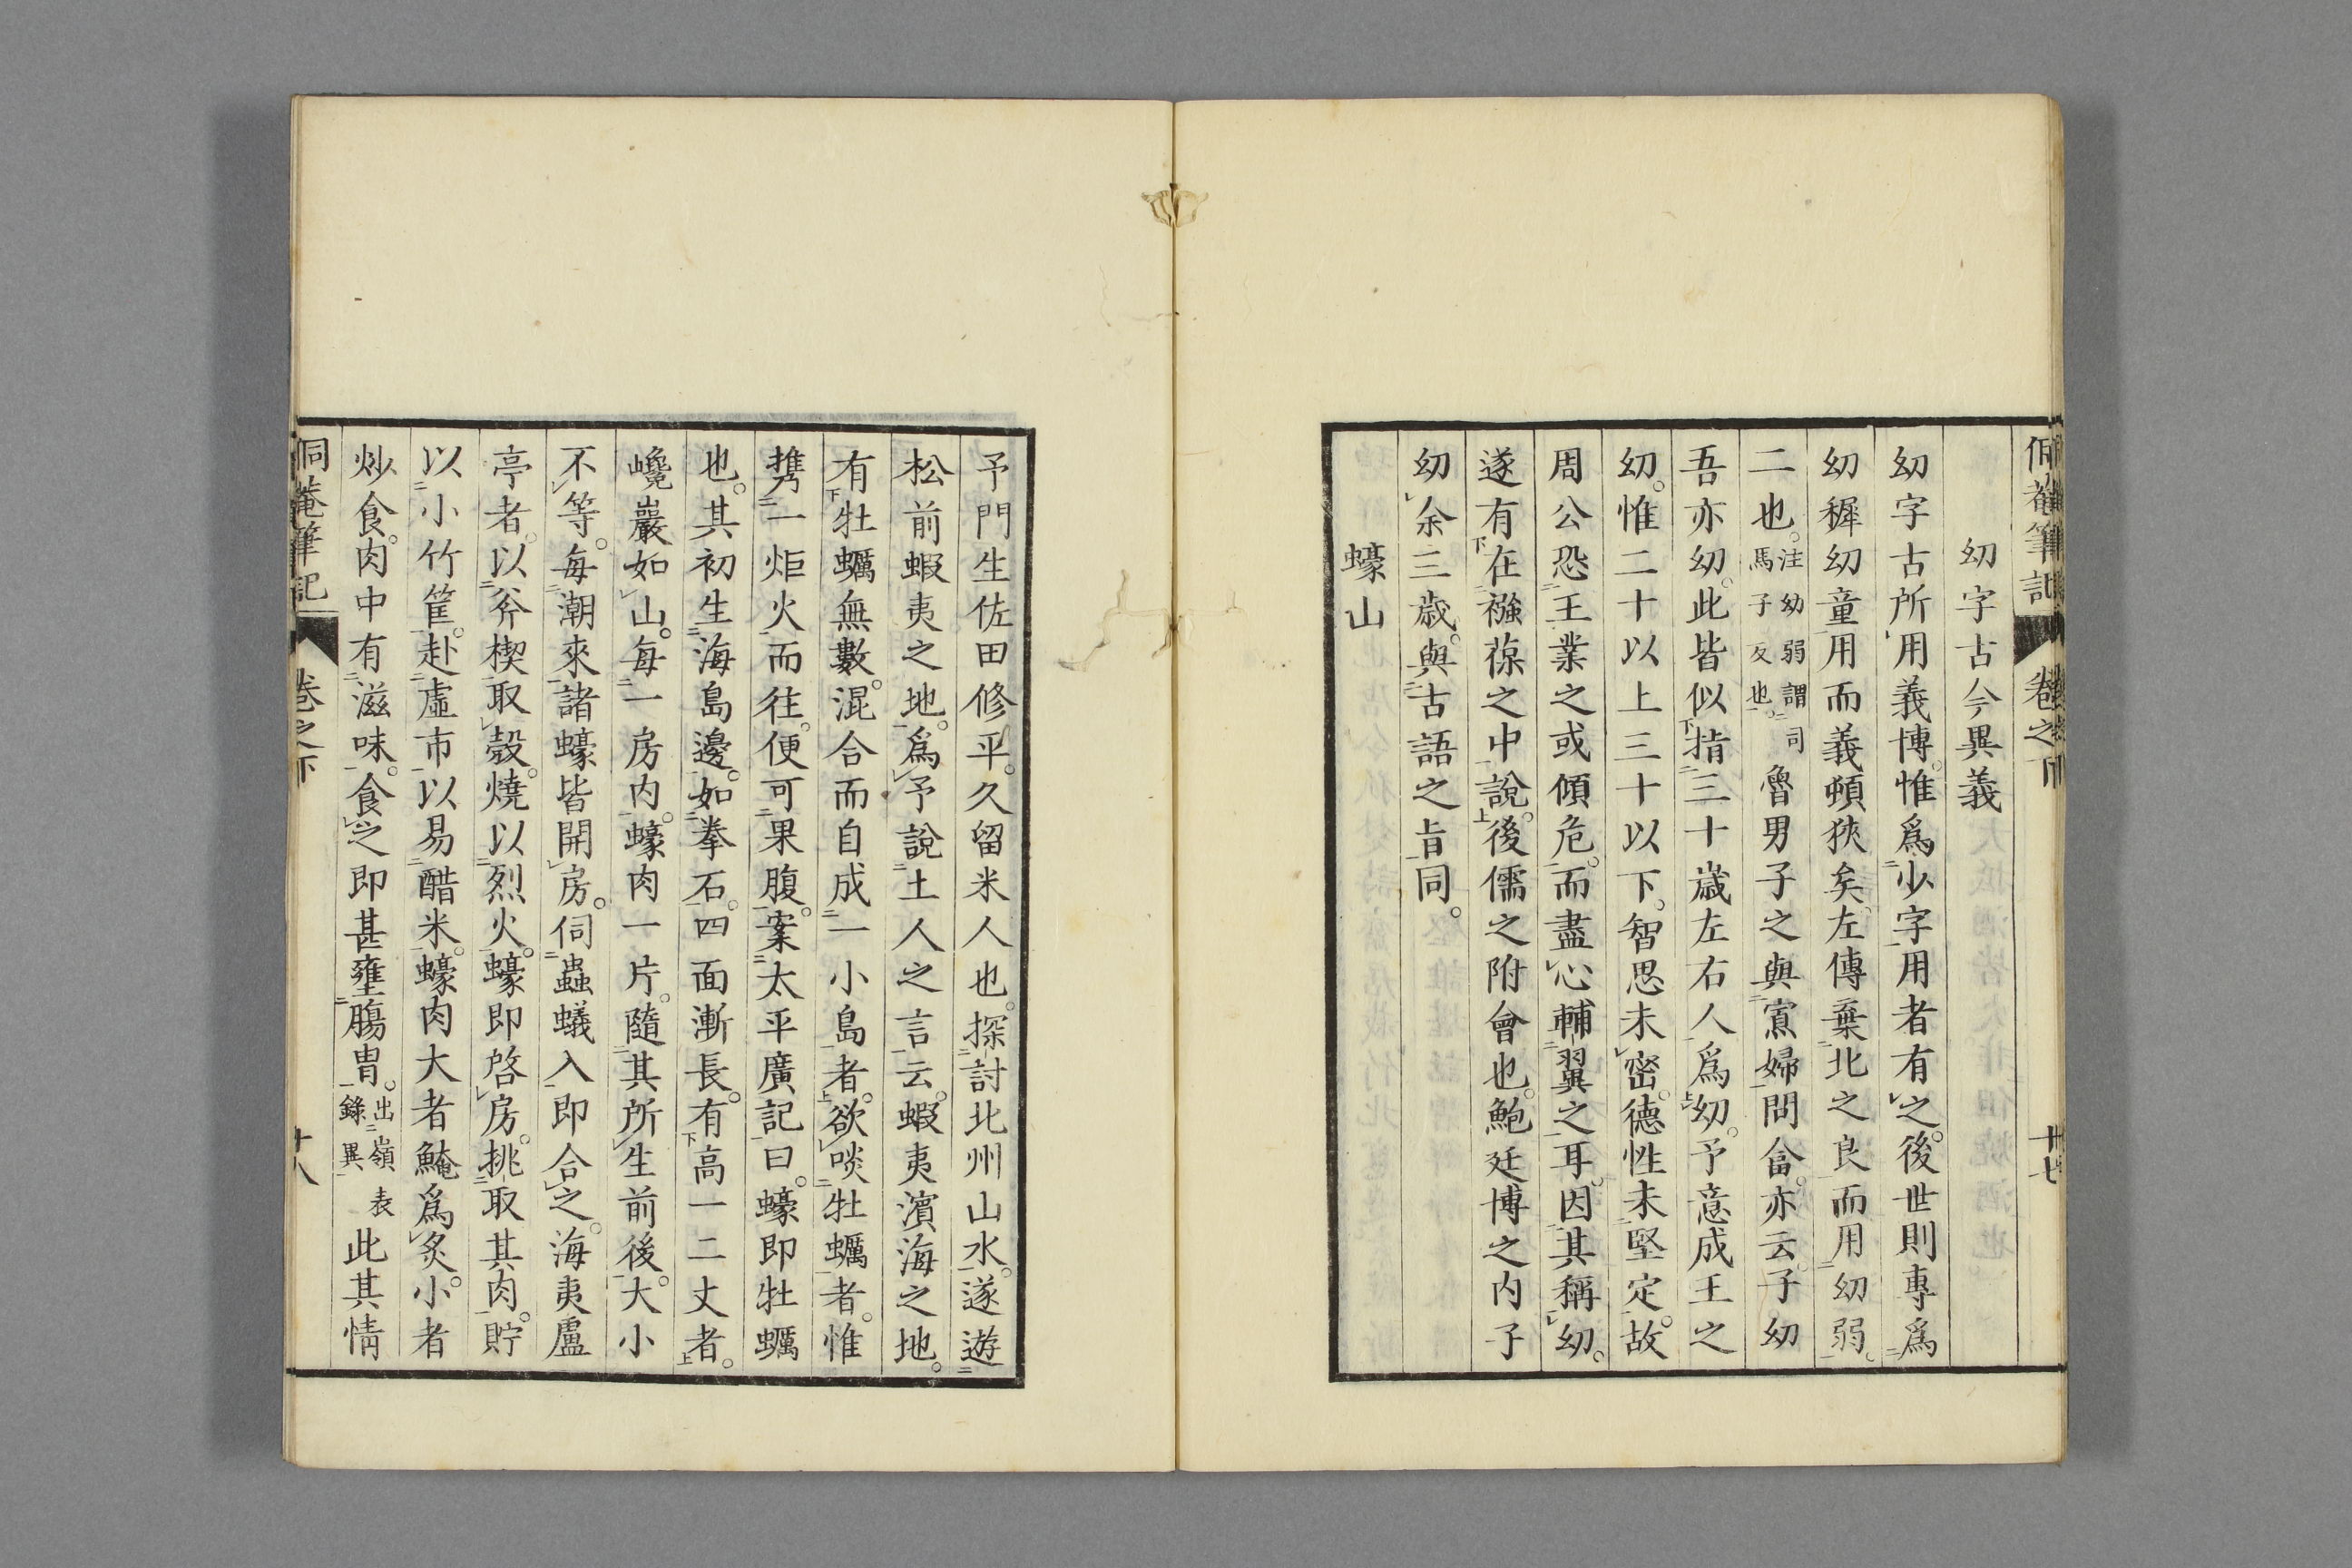 侗菴筆記 卷之下 十七
幼字古今異義
幼字古所用義博。惟爲少字用者有之。後世則專爲
幼穉幼童用而義頓狹矣。左傳棄北之良而用幼弱。
二也。注幼弱謂司馬子反也。魯男子之與寡婦問畣。亦云。子幼
吾亦幼。此皆似指三十歲左右人爲幼。予意成王之
幼。惟二十以上三十以下。智思未密。德性未堅定。故
周公恐王業之或傾危。而盡心輔翼之耳。因其稱幼。
遂有在襁葆之中說。後儒之附會也。鮑廷博之内子
幼余三歲。與古語之旨同。
蠔山
予門生佐田修平。久留米人也。探討北州山水。遂遊
松前蝦夷之地。爲予說土人之言云。蝦夷濱海之地。
有牡蠣無數。混合而自成一小島者。欲啖牡蠣者。惟
携一炬火而往。便可果腹。案太平廣記曰。蠔即牡蠣
也。其初生海島邊。如拳石。四面漸長。有高一二丈者。
巉巖如山。每一房内。蠔肉一片。隨其所生前後。大小
不等。每潮來諸蠔皆開房。伺蟲蟻入即合之。海夷盧
亭者。以斧楔取殼。燒以烈火。蠔即啓房。挑取其肉。貯
以小竹筐。赴虛市以易醋米。蠔肉大者鯘爲炙。小者
炒食。肉中有滋味。食之即甚壅腸胃。出嶺表錄異 此其情
侗菴筆記 卷之下 十八